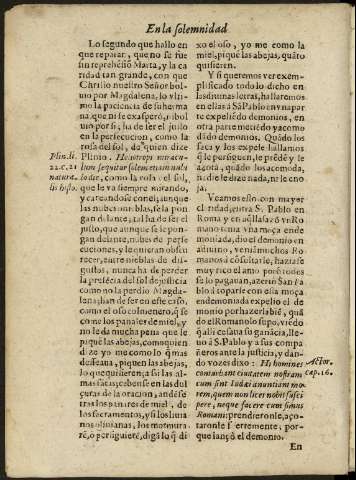 En la solemnidad
Lo segundo que hallo en
que reparar, que no se fue
sin reprehésió Marta, y la ca
ridad tan grande, con que
Christo nuestro Señor bol-
uio por Magdalena, lo vlti-
mo la paciencia de su herma
na, que ni se exasperó, ni bol
uio por si; ha de ser el justo
en la persecucion, como la
rosa del sol, de quien dize
Plinio. Heliotropi miracu-
lum sequitur solem etiam nubi
lo die, como la rosa del sol,
que le va siempre mirando,
y careandose con el, aunque
las nubes mas espesas se le pon
gan delante, tal ha de ser el
justo, que aunque se le pon-
gan delante, nubes de perse
cuciones, y le quieran obscu
recer, entre nieblas de dis-
gustos, nunca ha de perder
la presécia del sol de justicia
como no la perdio Magda-
lena; han de ser en este caso,
como el oso colmenero, q̃ se
come los panales de miel, y
no le da mucha pena que le
piquẽ las abejas, como quien
dize yo me como lo q̃ mas
desseaua, piquen las abejas,
lo que quisieren; assi las al-
mas
curas de la oracion, andése
tras los panares de miel, de
los sacramentos, y si los liuia
nos oliuianas, los motmura
rẽ, ó persiguierẽ, digã lo q̃ di
Plin. li.
22. c. 21
natura.
histo.
xo el oso, yo me como la
miel, piquẽ las abejas, quãto
quisieren.
Y si queremos ver exem-
plificado todo lo dicho en
las diuinas letras, hallaremos
en ellas a S. Pablo en vna par
te expeliẽdo demonios, en
otra parte metido y a como
dádo demonios. Quãdo los
saca y los expele hallamos
q̃ le persiguen, le prẽdẽ y le
açotã, quãdo los acomoda,
ni die le dize nada, ni le eno
ja.
Veamos esto con mayor
claridad, entra S. Pablo en
Roma y en aq̃lla sazõ vn Ro
mano tenia vna moça ende
moniada, dio el demonio en
adiuino, venia mucho s Ro-
manos a cõsultarle, haziase
muy rico el amo porq̃ todos
se lo pagauan, azertó San Pa
blo á toparse con ella moça
endemoniada expelio el de
monio por hazerle biẽ, quã
do el Romano lo supo, viẽdo
q̃ alli cessaua su ganácia, lle-
uo a S. Pablo y a sus compa-
ñeros ante la justicia, y dan-
do vozes dixo: Hi homines
conturbant ciuitatem nostram
cum sint Iudæi anuntiant mo-
rem, quem non licet nobis susci
pere, neque facere cum simus
Romani: prendieronle, aço-
taronle fuertemente, por-
que lançó el demonio.
Actor.
cap. 16.
En